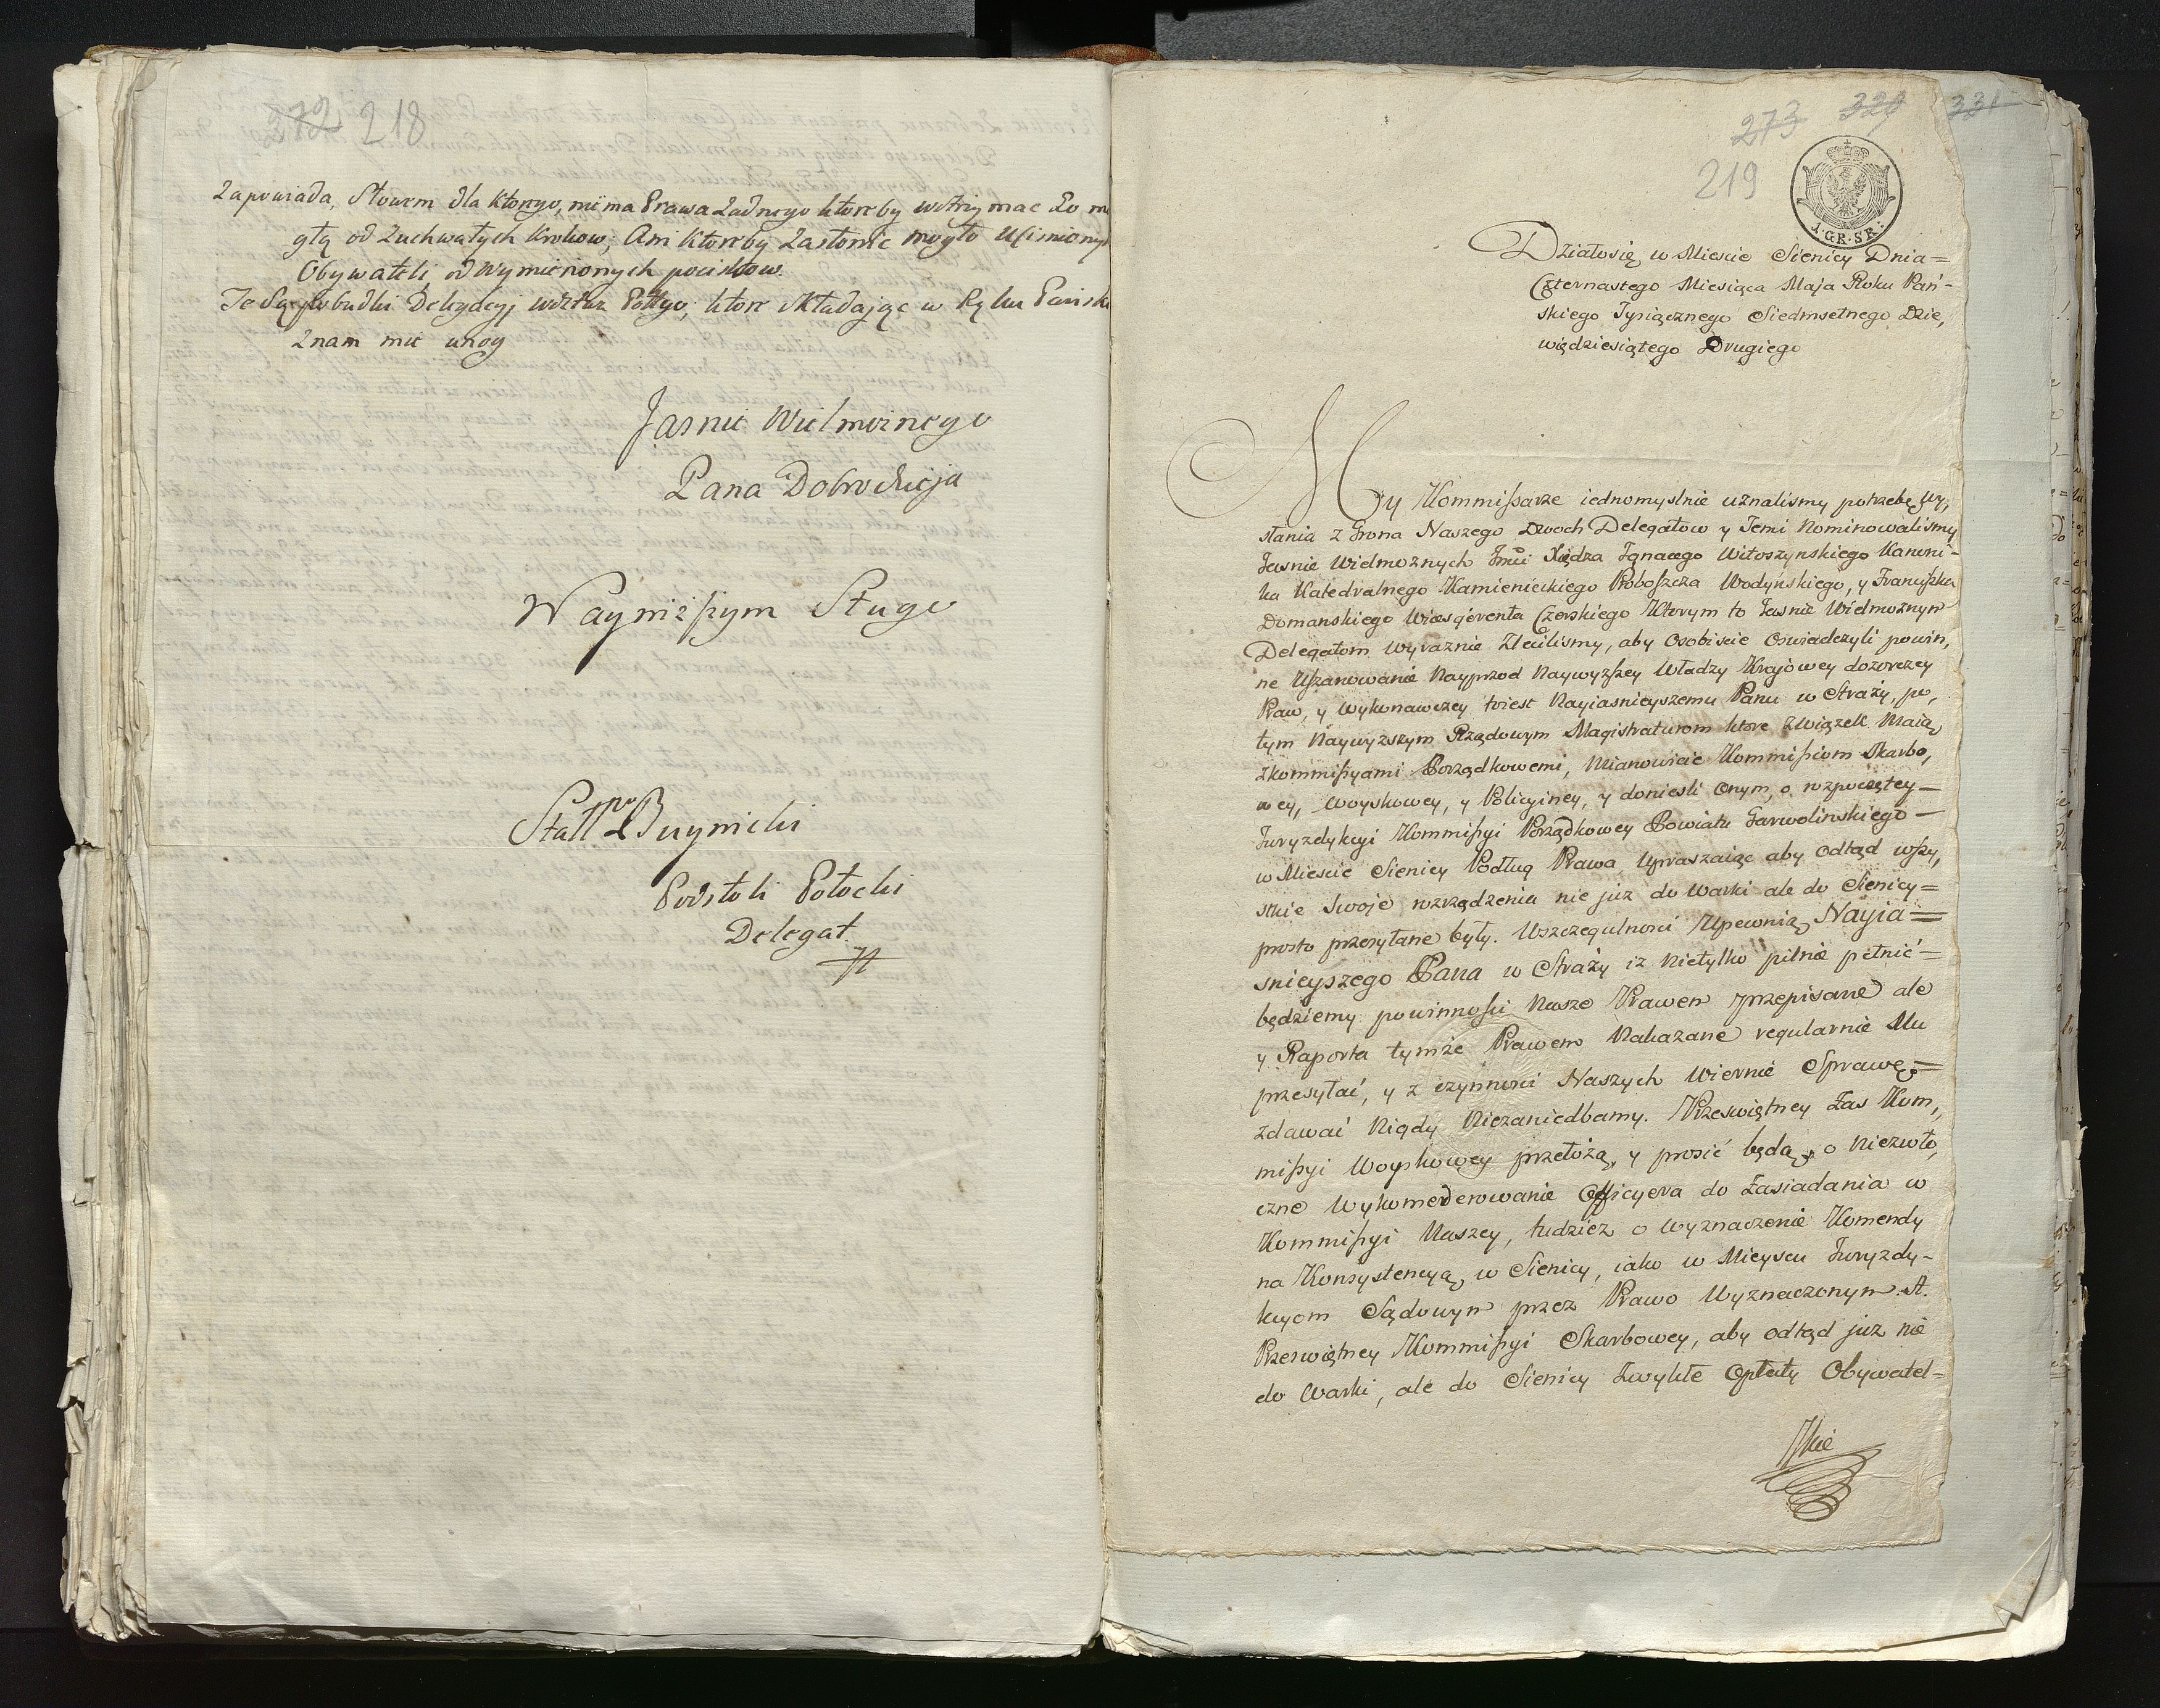 272 218
Zapowiada, Słowem dla ktorego, niema Prawa żadnego ktoreby wstrzymac Go m
głą od zuchwałych krokow; Ani ktoreby zasłonic mogło Ucisniony
Obywateli, od wymienionych pociskow.
Te Są pobudki Delegacyj wdztwa Połłgo, ktore składając w Ręku Pańsk
znam mię życzy
Jasnie Wielmoznego
Pana Dobrodzieja
Naynizszym Sługo
Buynicki
Podstoli Połocki
Delegat
273 329 331
219
1.GR.SR.
Działosię w Miescie Sienicy Dnia=
Czternastego Miesiąca Maja Roku Pań-
skiego Tysiącznego Siedmsetnego Dzie,
więdziesiątego Drugiego
My Kommissarze iednomyslnie uznalismy potrzebę wy,
słania z Grona Naszego Dwoch Delegatow y Temi Nominowalismy
Jasnie Wielmoznych Jmci Xiędza Ignacego Witoszynskiego Kanoni-
ka Katedralnego Kamienieckiego Proboszcza Wodyńskiego, y Franciszka
Domanskiego Wicesgerenta Czerskiego Ktorym to Jasnie Wielmoznym
Delegatom wyraznie Zlecilismy, aby osobiscie Oswiadczyli powin,
ne Uszanowanie Nayprzod Naywyzszey Władzy Krajowey dozorczey
Praw, y wykonawczey toiest Nayiasnieyszemu Panu w Straży, po,
tym Naywyzszym Rządowym Magistraturom ktore Związek Maią
zkommissyami Porządkowemi, Mianowicie Kommissiom Skarbo,
wey, Woyskowey, y Policyiney, y doniesli onym, o rozpoczętey-
Juryzdykcyi Kommissyi Porządkowey Powiatu Garwolinskiego-
w Miescie Sienicy Podług Prawa Upraszaiąc aby odtąd wszy,
stkie Swoje rozrządzenia nie już do Warki ale do Sienicy=
prosto przesyłane były. Wszczegulnosci Upewnią Nayia=
snieyszego Pana w Straży iz nietylko pilnie pełnić=
będziemy powinnosci Nasze Prawem przepisane ale
y Raporta tymże Prawem Nakazane regularnie Mu
przesyłać, y z czynnosci Naszych wiernie Sprawę=
zdawać Nigdy Niezaniedbamy. Przeswiętney Zas Kom,
missyi Woyskowey przełożą, y prosić będą, o Niezwło,
czne wykomederowanie Officyera do Zasiadania w
Kommissyi Naszey, tudziez o wyznaczenie Komendy
na Konsystencyą w Sienicy, iako w Mieyscu Juryzdy-
kcyom Sądowym przez Prawo Wyznaczonym. A.
Przeswiętney Kommissyi Skarbowey, aby odtąd juz nie
do Warki, ale do Sienicy Zwykłe Opłaty Obywatel-
skie